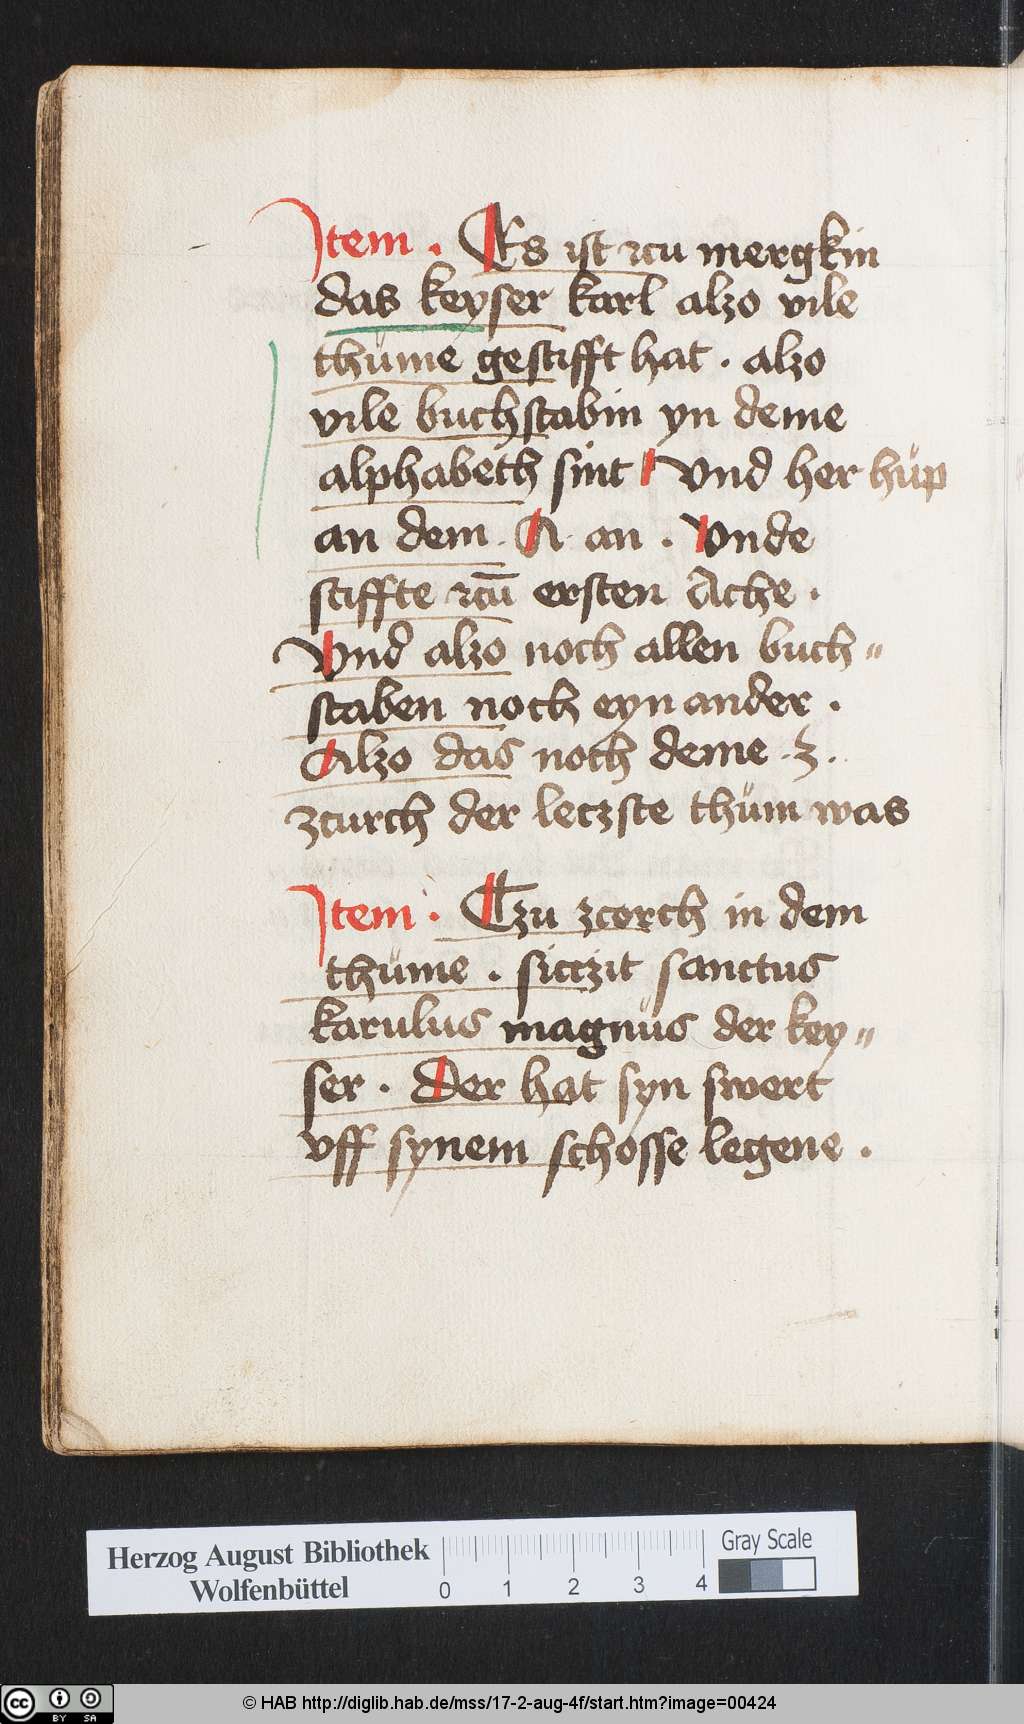 Item . Es ist zcu mergkin
das keyser karl alzo vile
thüme gestifft hat . alzo
vile buchstabin yn deme
alphabeth sint Vnd her hüp
an dem . A . an . Vnde
stiffte zcū ersten Ache .
Vnd alzo noch allen buch〃
staben noch eyn ander .
Alzo das noch deme . z .
zcurch der leczste thüm was
Item . Czu zcorch in dem
thüme . siczzit sanctus
karulus magnüs der key〃
ser . Der hat syn swert
vff synem schosse legene .
Herzog August Bibliothek
Wolfenbüttel
0 1 2 3 4
Gray Scale
cc BY SA
© HAB http://diglib.hab.de/mss/17-2-aug-4f/start.htm?image=00424